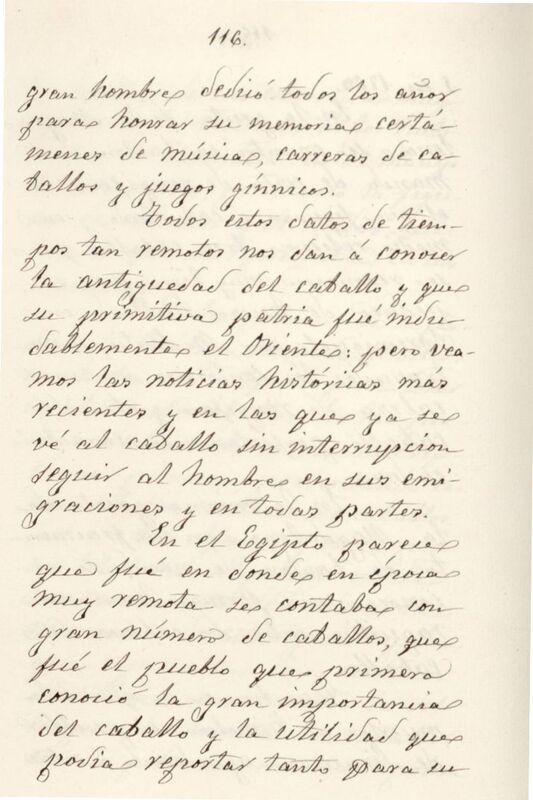 116.
gran hombre dedicó todos los años
para honrar su memoria certá-
menes de música, carreras de ca-
ballos y juegos gínnicos.
Todos estos datos de tiem-
pos tan remotos nos dan á conocer
la antiguedad del caballo y que
su primitiva patria fué indu-
dablemente el Oriente: pero vea-
mos las noticias históricas más
recientes y en las que ya se
vé al caballo sin interrupcion
seguir al hombre en sus emi-
graciones y en todas partes.
En el Egipto parece
que fué en donde en época
muy remota se contaba con
gran número de caballos, que
fué el pueblo que primero
conoció la gran importancia
del caballo y la utilidad que
podia reportar tanto para su